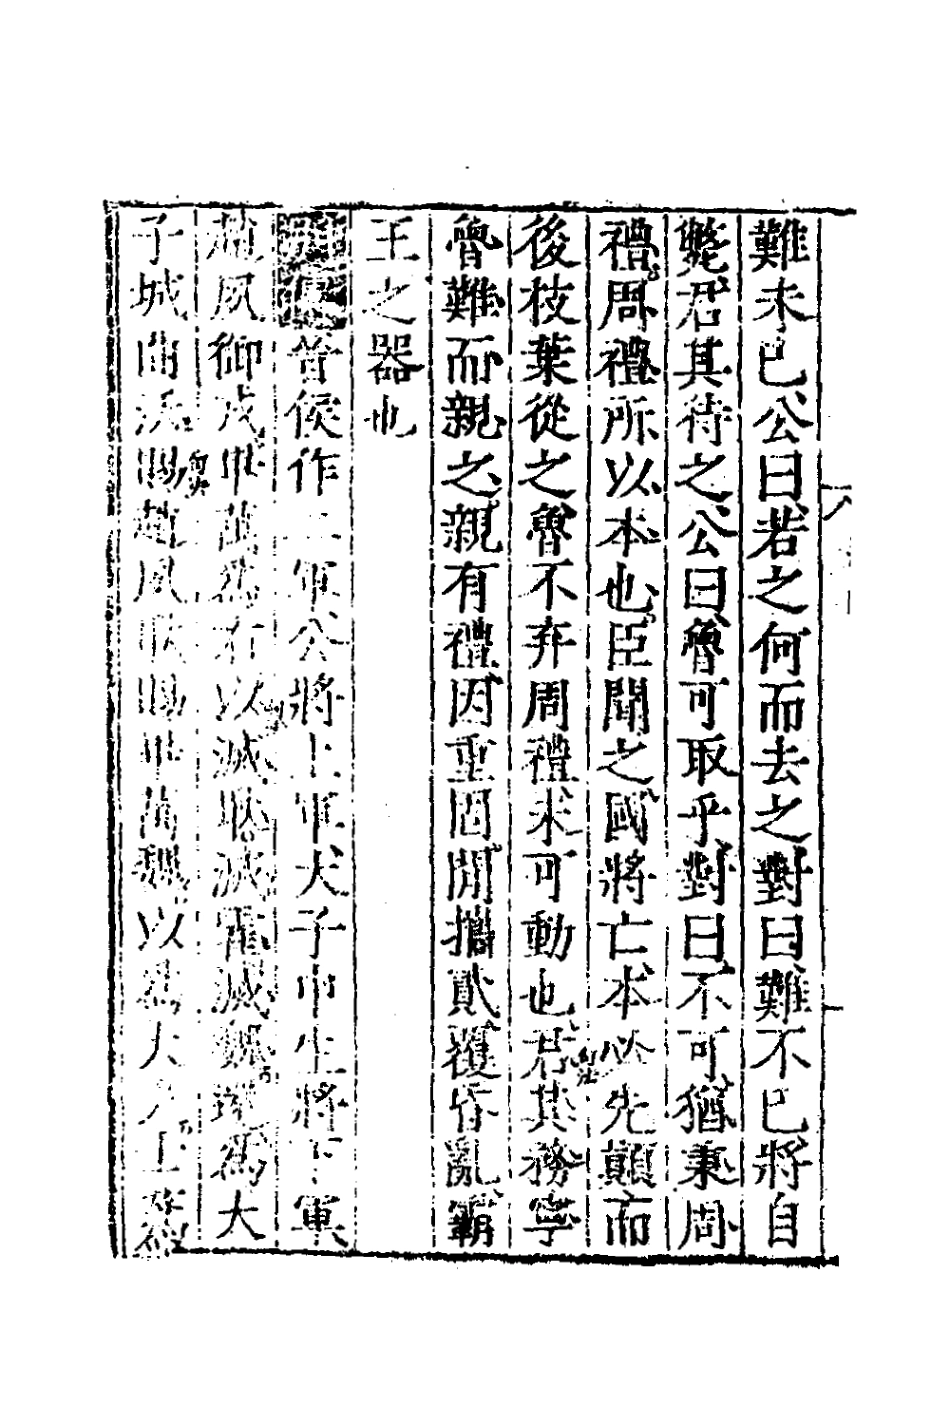 難未已公曰若之何而去之對曰難不已將自
斃君其待之公曰魯可取乎對曰不可猶秉周
禮周禮所以本也臣聞之國將亡本必先顛而
後枝葉從之魯不弃周禮未可動也君其務寧
魯難而親之親有禮因重固間攜貳覆昏亂霸
王之器也
晉侯作二軍公將上軍大子申生將下軍
趙夙御戎畢萬爲右以滅耿滅霍滅魏還爲大
子城曲沃賜趙夙耿賜畢萬魏以爲大夫士蒍